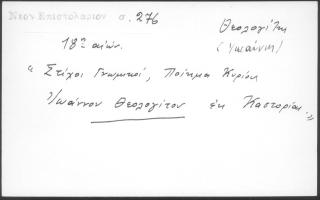 Νεον Επιστολαριον σ. 276
Θεολογίτη
(Ιωάννη)
18ος αιών.
"Στίχοι Γνωμικοί, Ποίημα Κυρίου
Ιωάννου Θεολογίτου εκ Καστορίας"